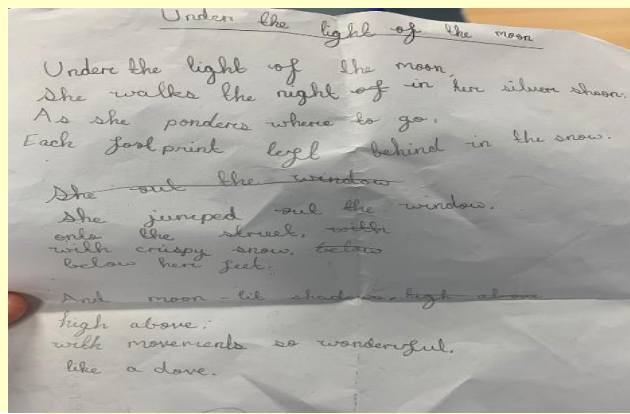 Under the light of the moon
Under the light of the moon,
She walks the night of in her silver shoon.
As she ponders where to go.
Each footprint left behind in the snow.
She out the window
She jumped out the window.
onto the street, with
with crispy snow, below
below her feet.
And moon-lit shadows, high above
high above.
with movements so wonderful.
like a dove.